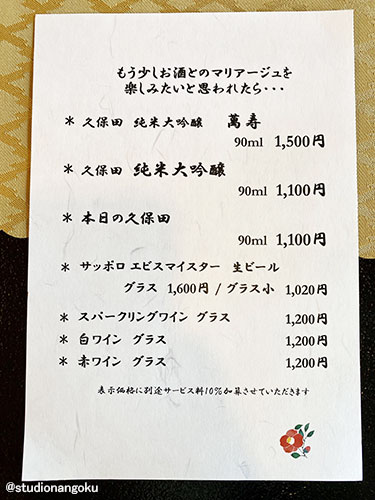 もう少しお酒とのマリアージュを
楽しみたいと思われたら・・・
＊ 久保田 純米大吟醸 萬寿
90ml 1,500円
＊ 久保田 純米大吟醸
90ml 1,100円
＊ 本日の久保田
90ml 1,100円
＊ サッポロ エビスマイスター 生ビール
グラス 1,600円 / グラス小 1,020円
＊ スパークリングワイン グラス 1,200円
＊ 白ワイン グラス 1,200円
＊ 赤ワイン グラス 1,200円
表示価格に別途サービス料10%加算させていただきます
@studionangoku